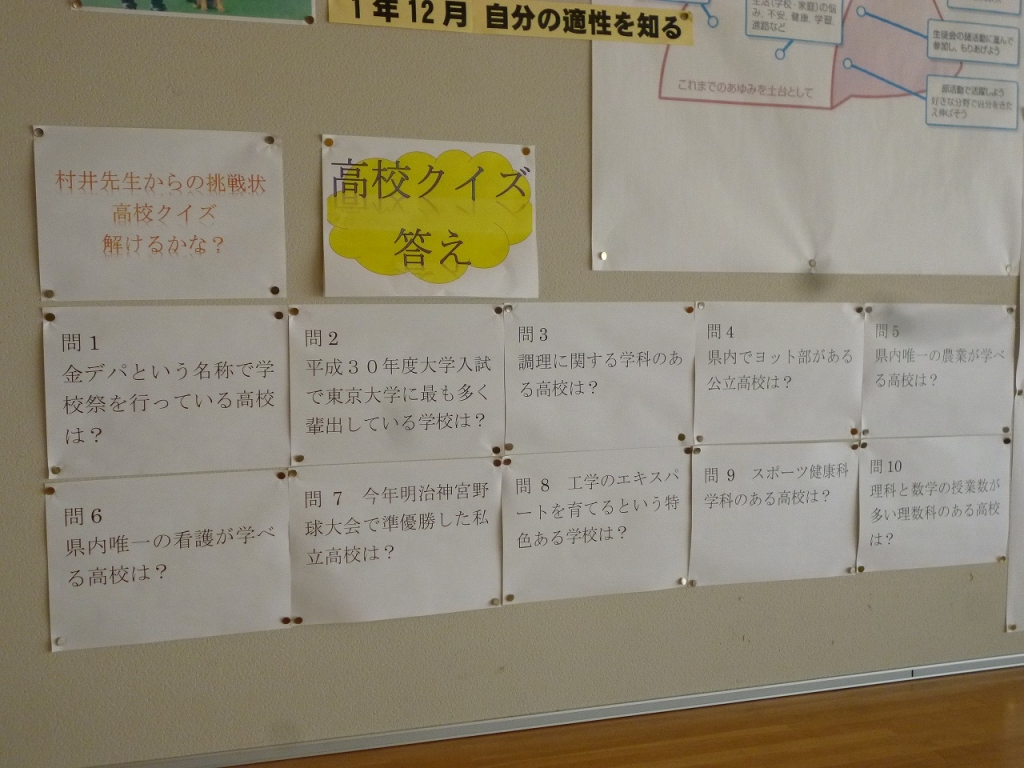 1年12月 自分の適性を知る
生活(学校・家庭)の悩
み、不安、健康、学習、
進路など
生徒会の諸活動に進んで
参加し、もりあげよう
部活動で活躍しよう
好きな分野で自分をきた
え伸ばそう
これまでのあゆみを土台として
村井先生からの挑戦状
高校クイズ
解けるかな?
高校クイズ
答え
問1
金デパという名称で学
校祭を行っている高校
は?
問2
平成30年度大学入試
で東京大学に最も多く
輩出している学校は?
問3
調理に関する学科のあ
る高校は?
問4
県内でヨット部がある
公立高校は?
問5
県内唯一の農業が学べ
る高校は?
問6
県内唯一の看護が学べ
る高校は?
問7 今年明治神宮野
球大会で準優勝した私
立高校は?
問8 工学のエキスパ
ートを育てるという特
色ある学校は?
問9 スポーツ健康科
学科のある高校は?
問10
理科と数学の授業数が
多い理数科のある高校
は?